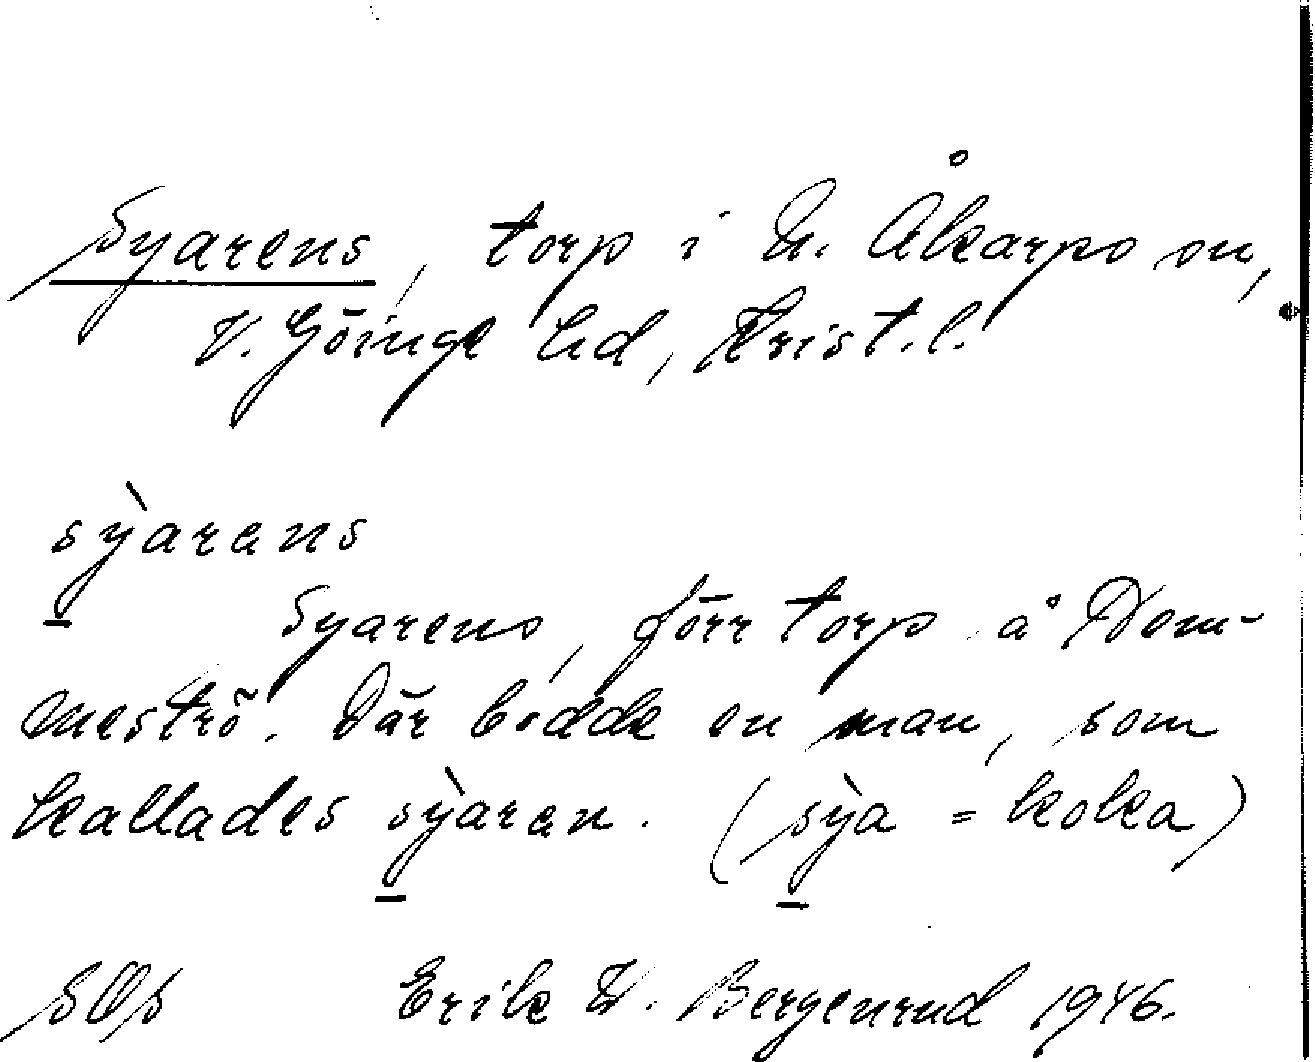 Syarens, torp i N. Åkarps sn,
V. Göinge hd, Krist. l.
sỳ̱arans
Syarens, förr torp å Dom-
meströ. Där bodde en man, som
kallades sỳ̱aran. (sỳ̱a = koka)
SOs Erik W. Bergenrud 1946.